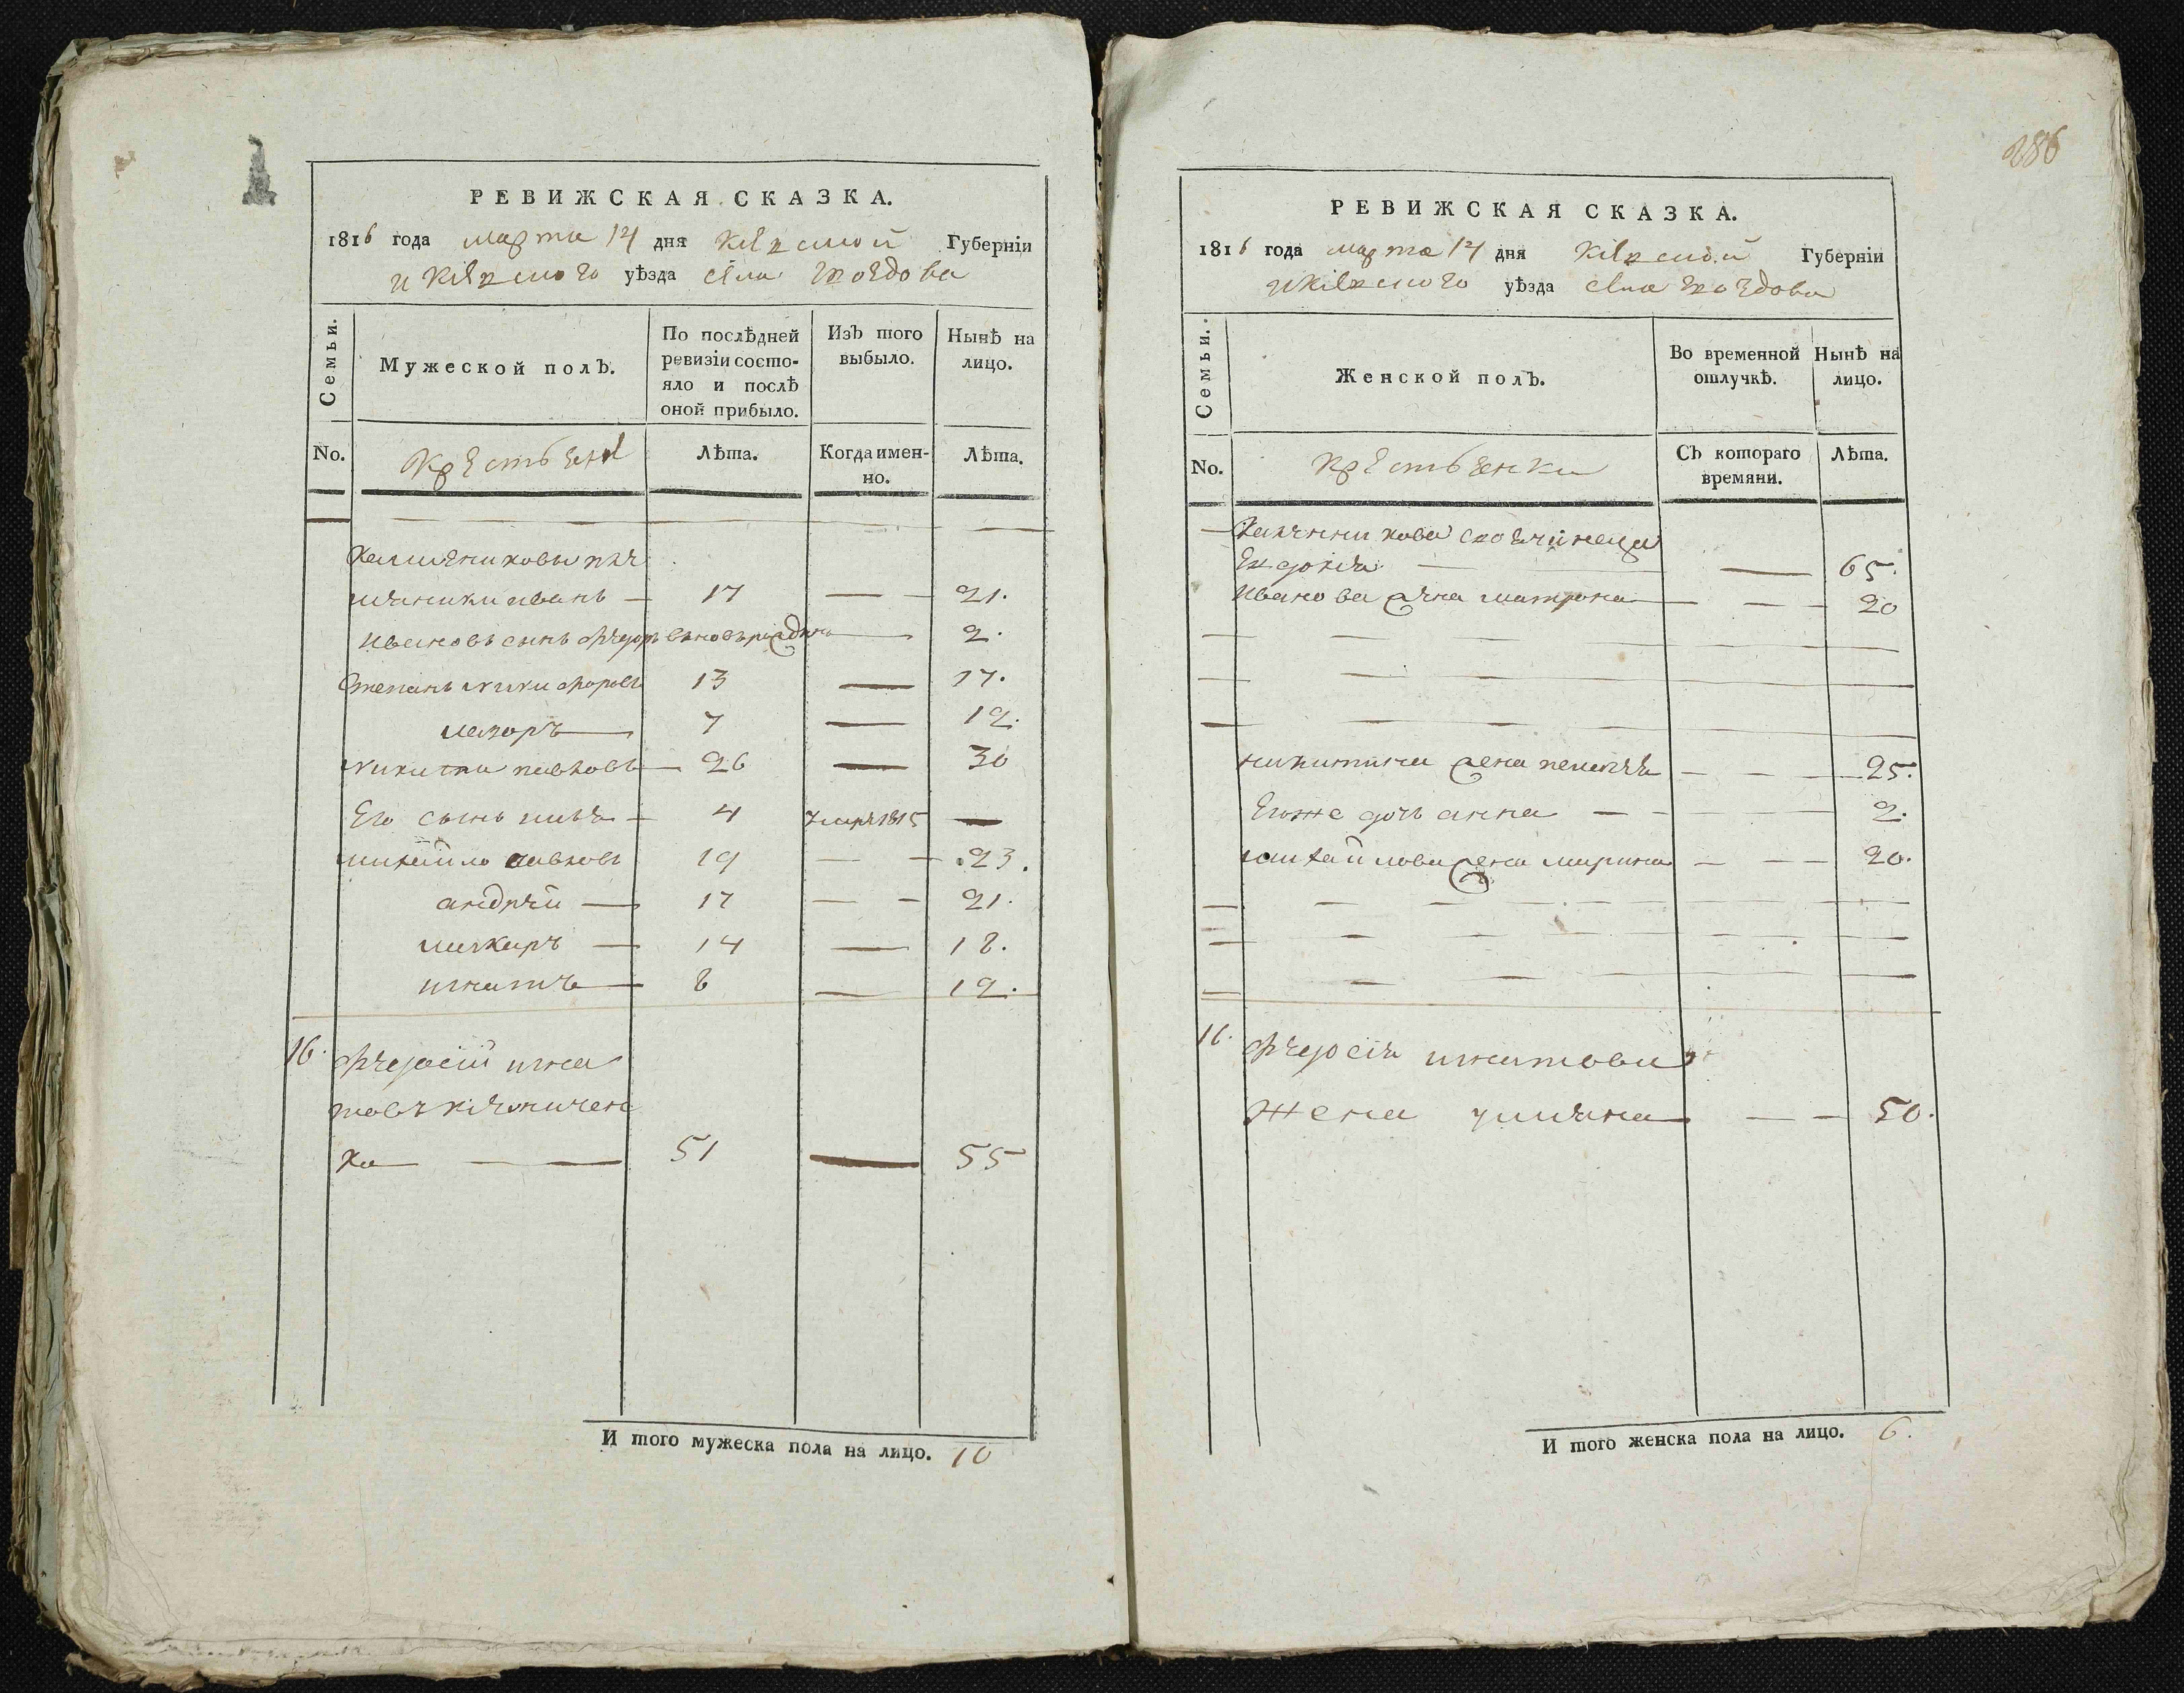 286
РЕВИЖСКАЯ СКАЗКА.
1816 года марта 14 дня Кіевской Губерніи
и Кіевского уѣзда села Гвоздова
Семьи.
Мужеской полъ.
По послѣдней ревизіи состо-
яло и послѣ
оной прибыло.
Изъ того
выбыло.
Нынѣ на
лицо.
No.
крестьяне
Лѣта.
Когда имен-
но.
Лѣта.
иванъ — 17 — — 21.
Ивановъ сынъ Федоръ — 2.
Степанъ Никифоровъ 13 — 17.
Лазоръ — 7 — 12.
Никита Павловъ — 26 — 30
Его сынъ — 4 1815 —
Михайло Павловъ 19 — — 23.
андрей — 17 — — 21.
Макаръ — 14 — 18.
игнатъ — 8 — 12.
16. Федосій игна
товъ
ко — — — 51 — 55
И того мужеска пола на лицо. 10
РЕВИЖСКАЯ СКАЗКА.
1816 года марта 14 дня Кіевской Губерніи
и Кіевского уѣзда села Гвоздова
Семьи.
Женской полъ.
Во временной
отлучкѣ.
Нынѣ на
лицо.
No.
крестьянки
Съ котораго
времяни.
Лѣта.
Евдокія — — — 65.
Иванова жена матрона — — — 20
никитина жена — — — 25.
Егоже дочь анна — — — 2.
михайлова жена марина — — — 20.
16. Федосія игнатова
жена уляна — — — 50.
И того женска пола на лицо. 6.